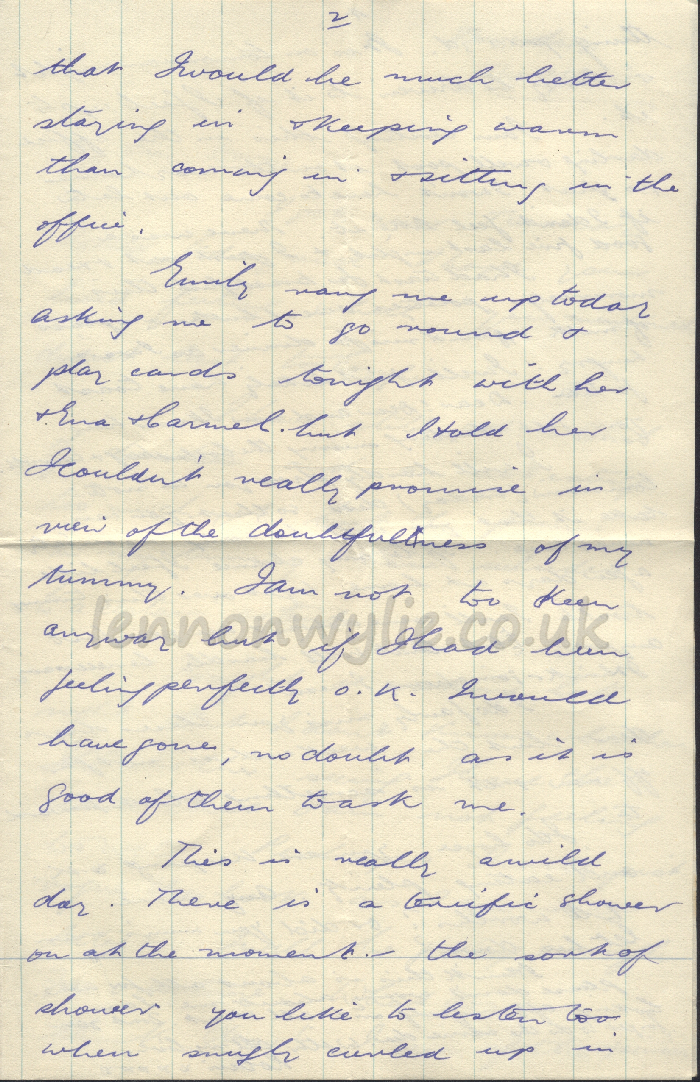 2
that I would be much better
staying in & keeping warm
than coming in & sitting in the
office.
Emily rang me up today
asking me to go round &
play cards tonight with her
& Ena & Carmel. but I told her
I couldn't really promise in
view of the doubtfulness of my
tummy. I am not too keen
anyway but if I had been
feeling perfectly o.k. I would
have gone, no doubt as it is
good of them to ask me.
This is really a wild
day. There is a terrific shower
on at the moment. - the sort of
shower you like to listen too
when snugly curled up in
lennonwylie.co.uk